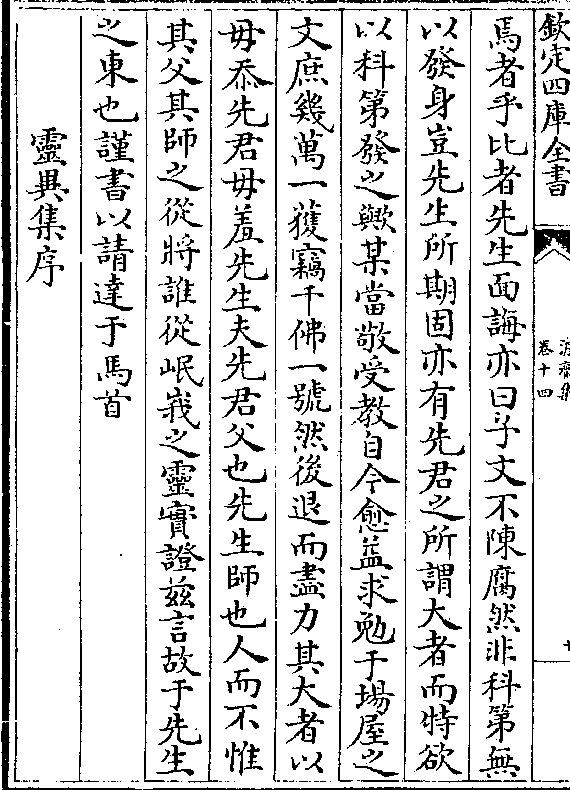 欽定四庫全書
卷十四
焉者乎比者先生面誨亦曰子文不陳腐然非科第無
以發身豈先生所期固亦有先君之所謂大者而特欲
以科第發之歟某當敬受教自今愈益求勉于場屋之
文庶幾萬一獲竊千佛一號然後退而盡力其大者以
毋忝先君毋羞先生夫先君父也先生師也人而不惟
其父其師之從將誰從岷峩之靈實證兹言故于先生
之東也謹書以請達于馬首
靈異集序